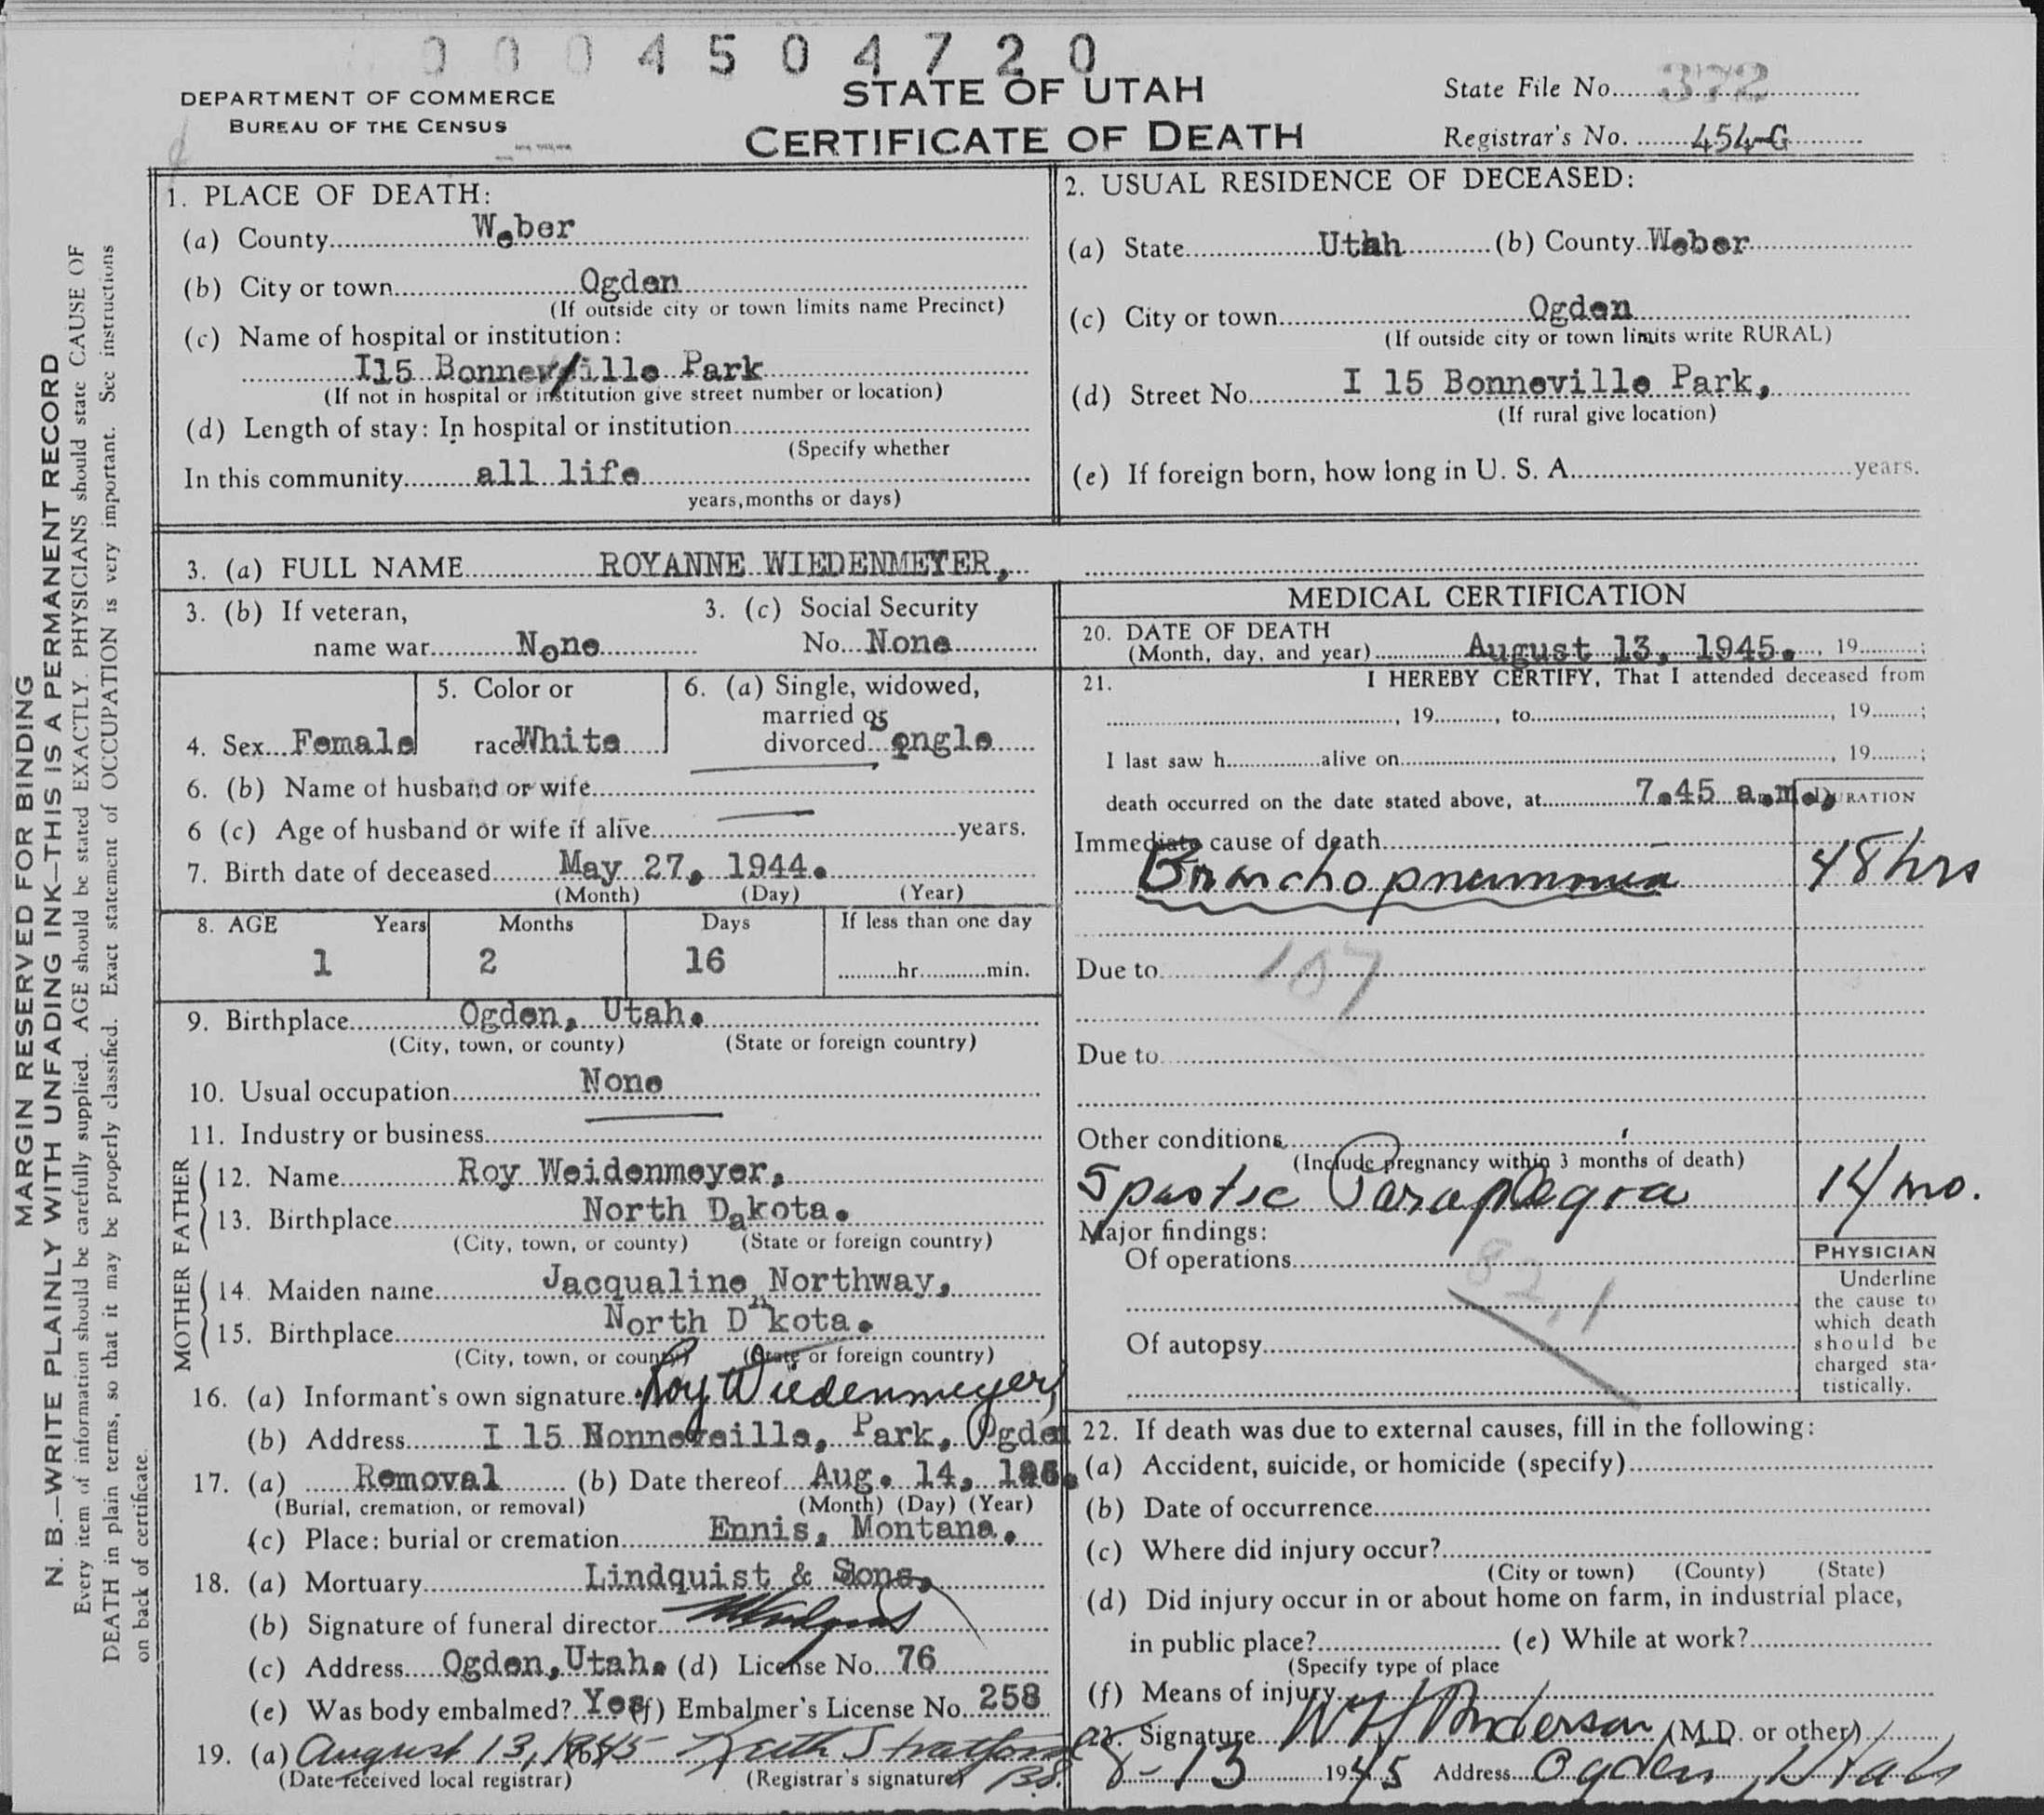 0 0 0 4 5 0 4 7 2 0
DEPARTMENT OF COMMERCE
BUREAU OF THE CENSUS
STATE OF UTAH
CERTIFICATE OF DEATH
State File No. 372
Registrar's No. 454-G
MARGIN RESERVED FOR BINDING
N. B.—WRITE PLAINLY WITH UNFADING INK—THIS IS A PERMANENT RECORD
Every item of information should be carefully supplied. AGE should be stated EXACTLY. PHYSICIANS should state CAUSE OF
DEATH in plain terms, so that it may be properly classified. Exact statement of OCCUPATION is very important. See instructions
on back of certificate.
1. PLACE OF DEATH:
(a) County Weber
(b) City or town Ogden
(If outside city or town limits name Precinct)
(c) Name of hospital or institution:
I15 Bonneville Park
(If not in hospital or institution give street number or location)
(d) Length of stay: In hospital or institution
(Specify whether
In this community all life
years, months or days)
2. USUAL RESIDENCE OF DECEASED:
(a) State Utah (b) County Weber
(c) City or town Ogden
(If outside city or town limits write RURAL)
(d) Street No. I 15 Bonneville Park,
(If rural give location)
(e) If foreign born, how long in U. S. A. years.
3. (a) FULL NAME ROYANNE WIEDENMEYER,
3. (b) If veteran,
name war None
3. (c) Social Security
No. None
4. Sex Female
5. Color or
race White
6. (a) Single, widowed,
married or
divorced Sngle
6. (b) Name of husband or wife
6 (c) Age of husband or wife if alive years.
7. Birth date of deceased May 27, 1944.
(Month) (Day) (Year)
8. AGE Years Months Days If less than one day
1 2 16 hr. min.
9. Birthplace Ogden, Utah.
(City, town, or county) (State or foreign country)
10. Usual occupation None
11. Industry or business
FATHER
12. Name Roy Weidenmeyer,
13. Birthplace North Dakota.
(City, town, or county) (State or foreign country)
MOTHER
14. Maiden name Jacqualine Northway,
15. Birthplace North Dakota.
(City, town, or county) (State or foreign country)
16. (a) Informant's own signature Roy Wiedenmeyer
(b) Address I 15 Bonneveille, Park, Ogden
17. (a) Removal (b) Date thereof Aug. 14,
(Burial, cremation, or removal) (Month) (Day) (Year)
(c) Place: burial or cremation Ennis, Montana.
18. (a) Mortuary Lindquist & Sons,
(b) Signature of funeral director
(c) Address Ogden, Utah. (d) License No. 76
(e) Was body embalmed? Yes (f) Embalmer's License No. 258
19. (a) August 13, 1945 (b) Keith Stratford
(Date received local registrar) (Registrar's signature)
MEDICAL CERTIFICATION
20. DATE OF DEATH
(Month, day, and year) August 13, 1945. , 19 ;
21. I HEREBY CERTIFY, That I attended deceased from
, 19 , to , 19 ;
I last saw h alive on , 19 ;
death occurred on the date stated above, at 7.45 a.m.,
DURATION
Immediate cause of death
Bronchopneumonia 48 hrs
Due to 107
Due to
Other conditions
(Include pregnancy within 3 months of death)
Spastic Paraplegia 14 mo.
Major findings:
Of operations
82.1
Of autopsy
PHYSICIAN
Underline
the cause to
which death
should be
charged sta-
tistically.
22. If death was due to external causes, fill in the following:
(a) Accident, suicide, or homicide (specify)
(b) Date of occurrence
(c) Where did injury occur?
(City or town) (County) (State)
(d) Did injury occur in or about home on farm, in industrial place,
in public place? (e) While at work?
(Specify type of place
(f) Means of injury
23. Signature W H Anderson (M.D. or other)
8-13 1945 Address Ogden, Utah